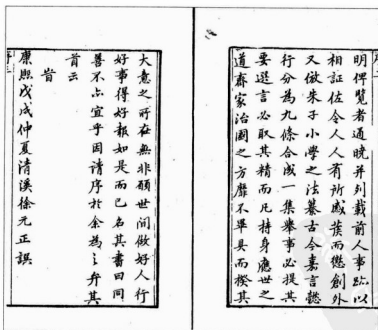 明俾覽者通曉并列載前人事跡以
相証佐令人人有所感發而懲創外
又倣朱子小學之法纂古今嘉言懿
行分為九條合成一集舉事必提其
要選言必取其精而凡持身應世之
道齊家治國之方靡不畢具而揆其
大意之所在無非願世間做好人行
好事得好報如是而已名其書曰同
善不亦宜乎因請序於余為之弁其
首云
旹
康熙戊戌仲夏清溪徐元正譔